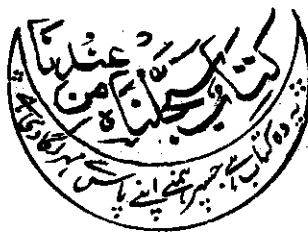 کتاب سجلناہ من عندنا
یہ وہ کتاب ہے جسپر ہمنے اپنے پاس سے مہر لگادی ہے